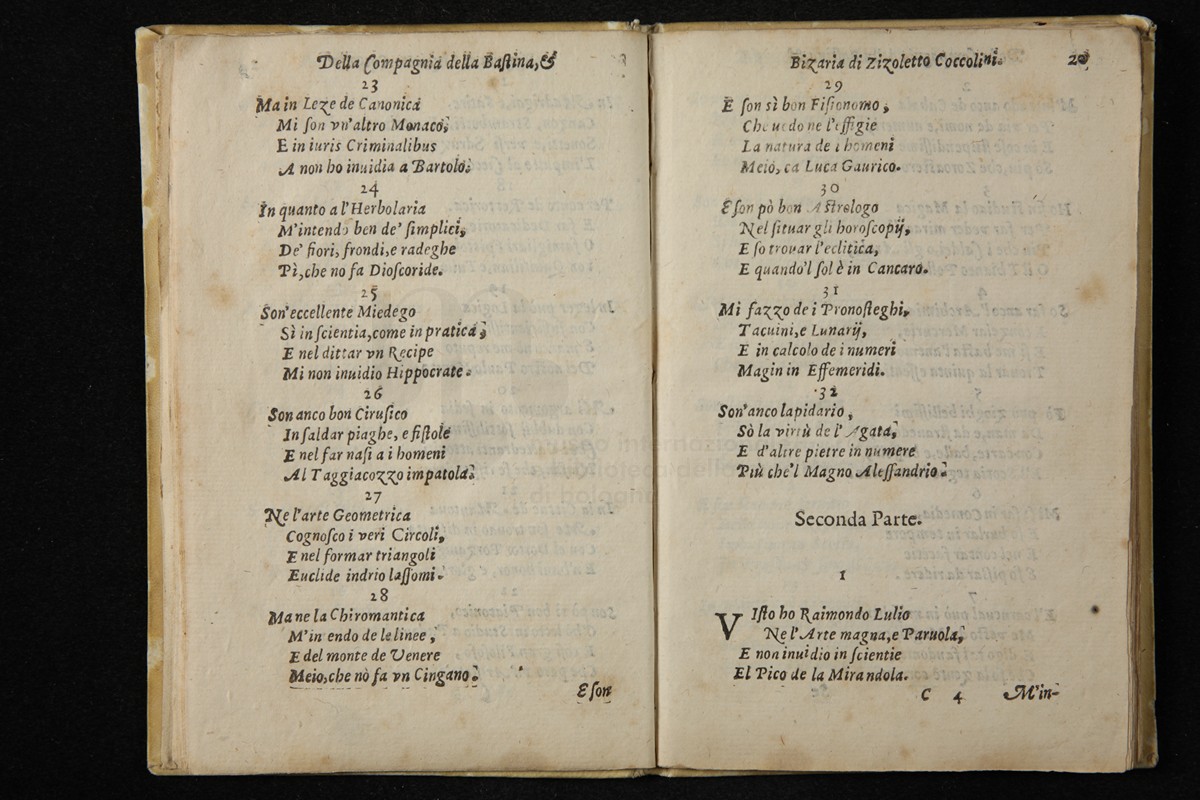 Della Compagnia della Baſtina, &
23
Ma in Leze de Canonica
Mi ſon vn'altro Monaco;
E in iuris Criminalibus
A non ho inuidia a Bartolo.
24
In quanto a l'Herbolaria
M'intendo ben de' ſimplici,
De' fiori, frondi, e radeghe
Pì, che no fa Dioſcoride.
25
Son'eccellente Miedego
Sì in ſcientia, come in pratica;
E nel dittar vn Recipe
Mi non inuidio Hippocrate.
26
Son anco bon Ciruſico
In ſaldar piaghe, e fiſtole
E nel far naſi a i homeni
Al Taggiacozzo impatola.
27
Ne l'arte Geometrica
Cognoſco i veri Circoli,
E nel formar triangoli
Euclide indrio laſſomi.
28
Ma ne la Chiromantica
M'in endo de le linee,
E del monte de Venere
Meio, che nò fa vn Cingano.
E ſon
Bizaria di Zizoletto Coccolini.
29
E ſon sì bon Fiſionomo,
Che uedo ne l'effigie
La natura de i homeni
Meio, ca Luca Gaurico.
30
E ſon pò bon Aſtrologo
Nel ſituar gli horoſcopij,
E ſo trouar l'eclitica,
E quando'l ſol è in Cancaro.
31
Mi fazzo de i Pronoſteghi,
Tacuini, e Lunarij,
E in calcolo de i numeri
Magin in Effemeridi.
32
Son'anco lapidario,
Sò la virtù de l'Agata,
E d'altre pietre in numere
Più che'l Magno Aleſſandrio.
Seconda Parte.
1
VIſto ho Raimondo Lulio
Ne l'Arte magna, e Paruola,
E non inuidio in ſcientie
El Pico de la Mirandola.
C 4 M'in-